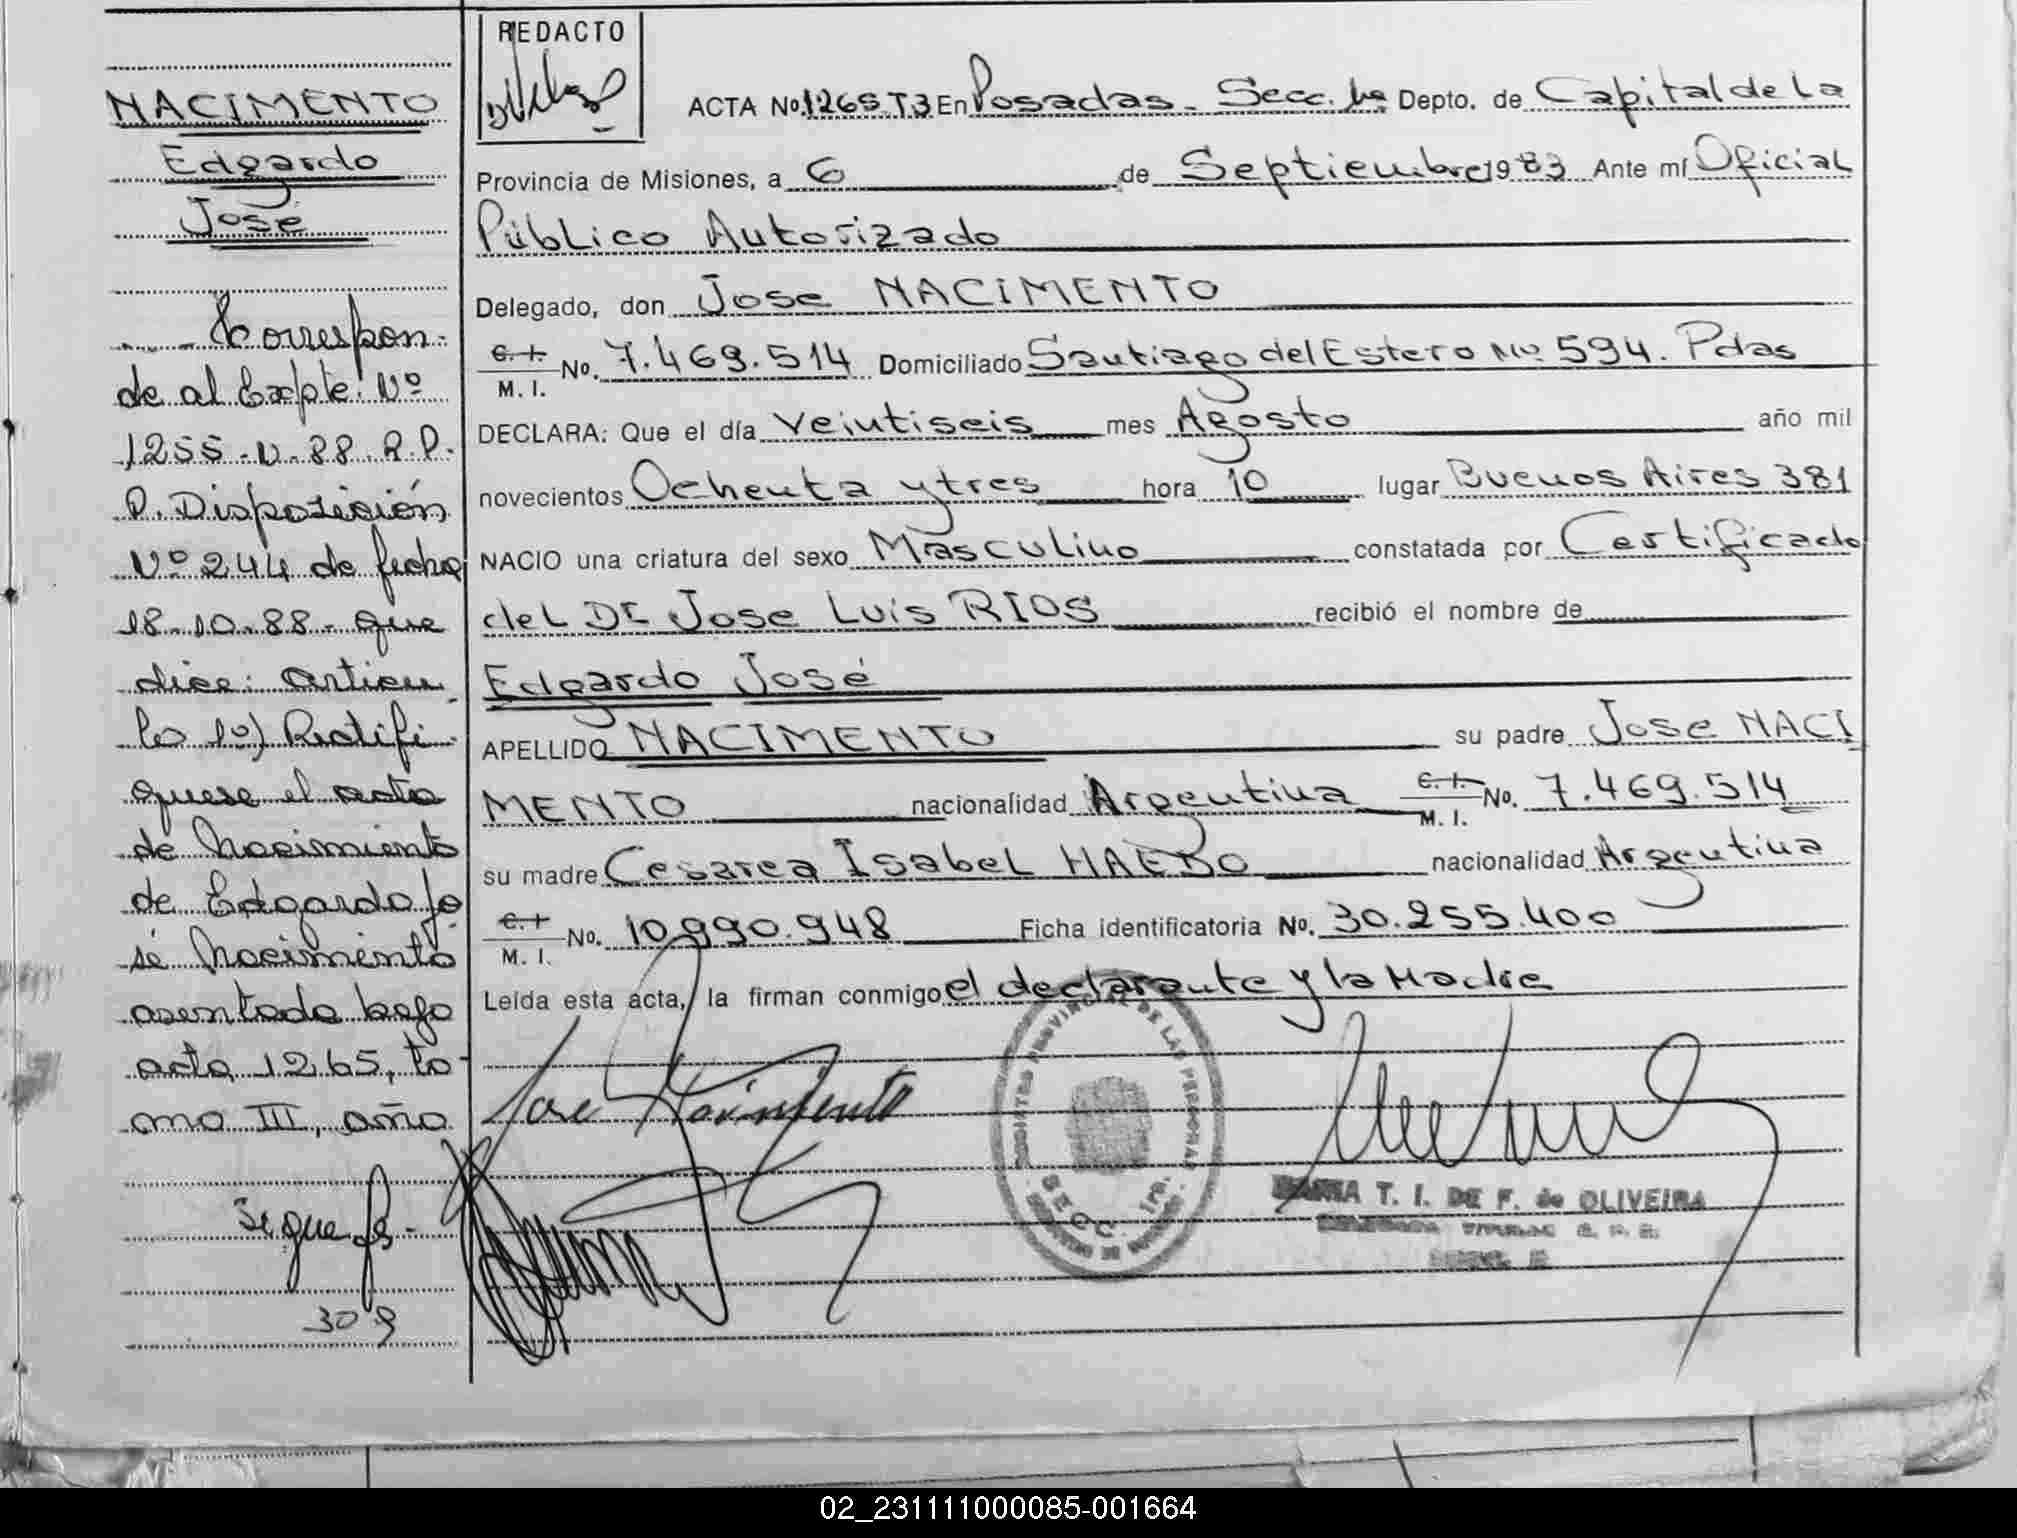 NACIMENTO
Edgardo
José
Correspon-
de al Expte. Nº
1255-N-88.R.P.
P. Disposición
Nº 244 de fecha
18-10-88- que
dice: Artícu
lo 1º) Rectifí-
quese el acta
de Nacimiento
de Edgardo Jo
sé Nacimento
asentada bajo
acta 1265, to-
mo III, año
Sigue fs-
309
REDACTO
ACTA No. 1265 T3 En Posadas - Secc. 1ª Depto. de Capital de La
Provincia de Misiones, a 6 de Septiembre 1983 Ante mí Oficial
Público Autorizado
Delegado, don Jose NACIMENTO
C. I. M. I. No. 7.469.514 Domiciliado Santiago del Estero Nº 594. Pdas
DECLARA: Que el día Veintiseis mes Agosto año mil
novecientos Ochenta y tres hora 10 lugar Buenos Aires 381
NACIO una criatura del sexo Masculino constatada por Certificado
del Dr Jose Luis RIOS recibió el nombre de
Edgardo José
APELLIDO NACIMENTO su padre Jose NACI
MENTO nacionalidad Argentina C. I. M. I. No. 7.469.514
su madre Cesarea Isabel HAEDO nacionalidad Argentina
C. I. M. I. No. 10.990.948 Ficha identificatoria No. 30.255.400
Leída esta acta, la firman conmigo el declarante y la Madre
Jose Nacimento
REGISTRO PROVINCIAL DE LAS PERSONAS
SECC. 1ra.
MARIA T. I. DE F. de OLIVEIRA
DELEGADA TITULAR
02_231111000085-001664